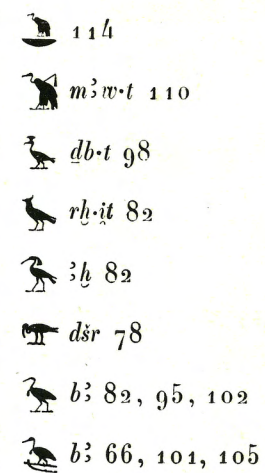 114
mꜣw·t 110
ḏb·t 98
rḫ·i̯t 82
ꜣḫ 82
dšr 78
bꜣ 82, 95, 102
bꜣ 66, 101, 105